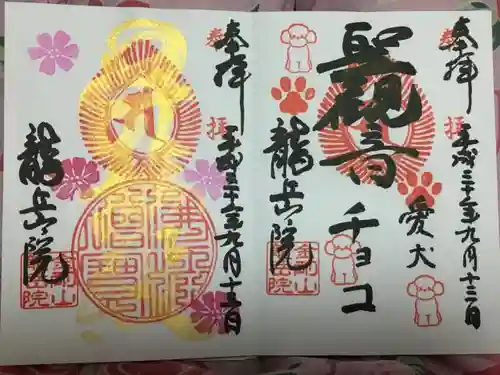 奉拝
平成三十年九月十三日
聖観音
愛犬
チョコ
龍岳院
奉拝
平成三十年九月十三日
佛法僧寶
龍岳院